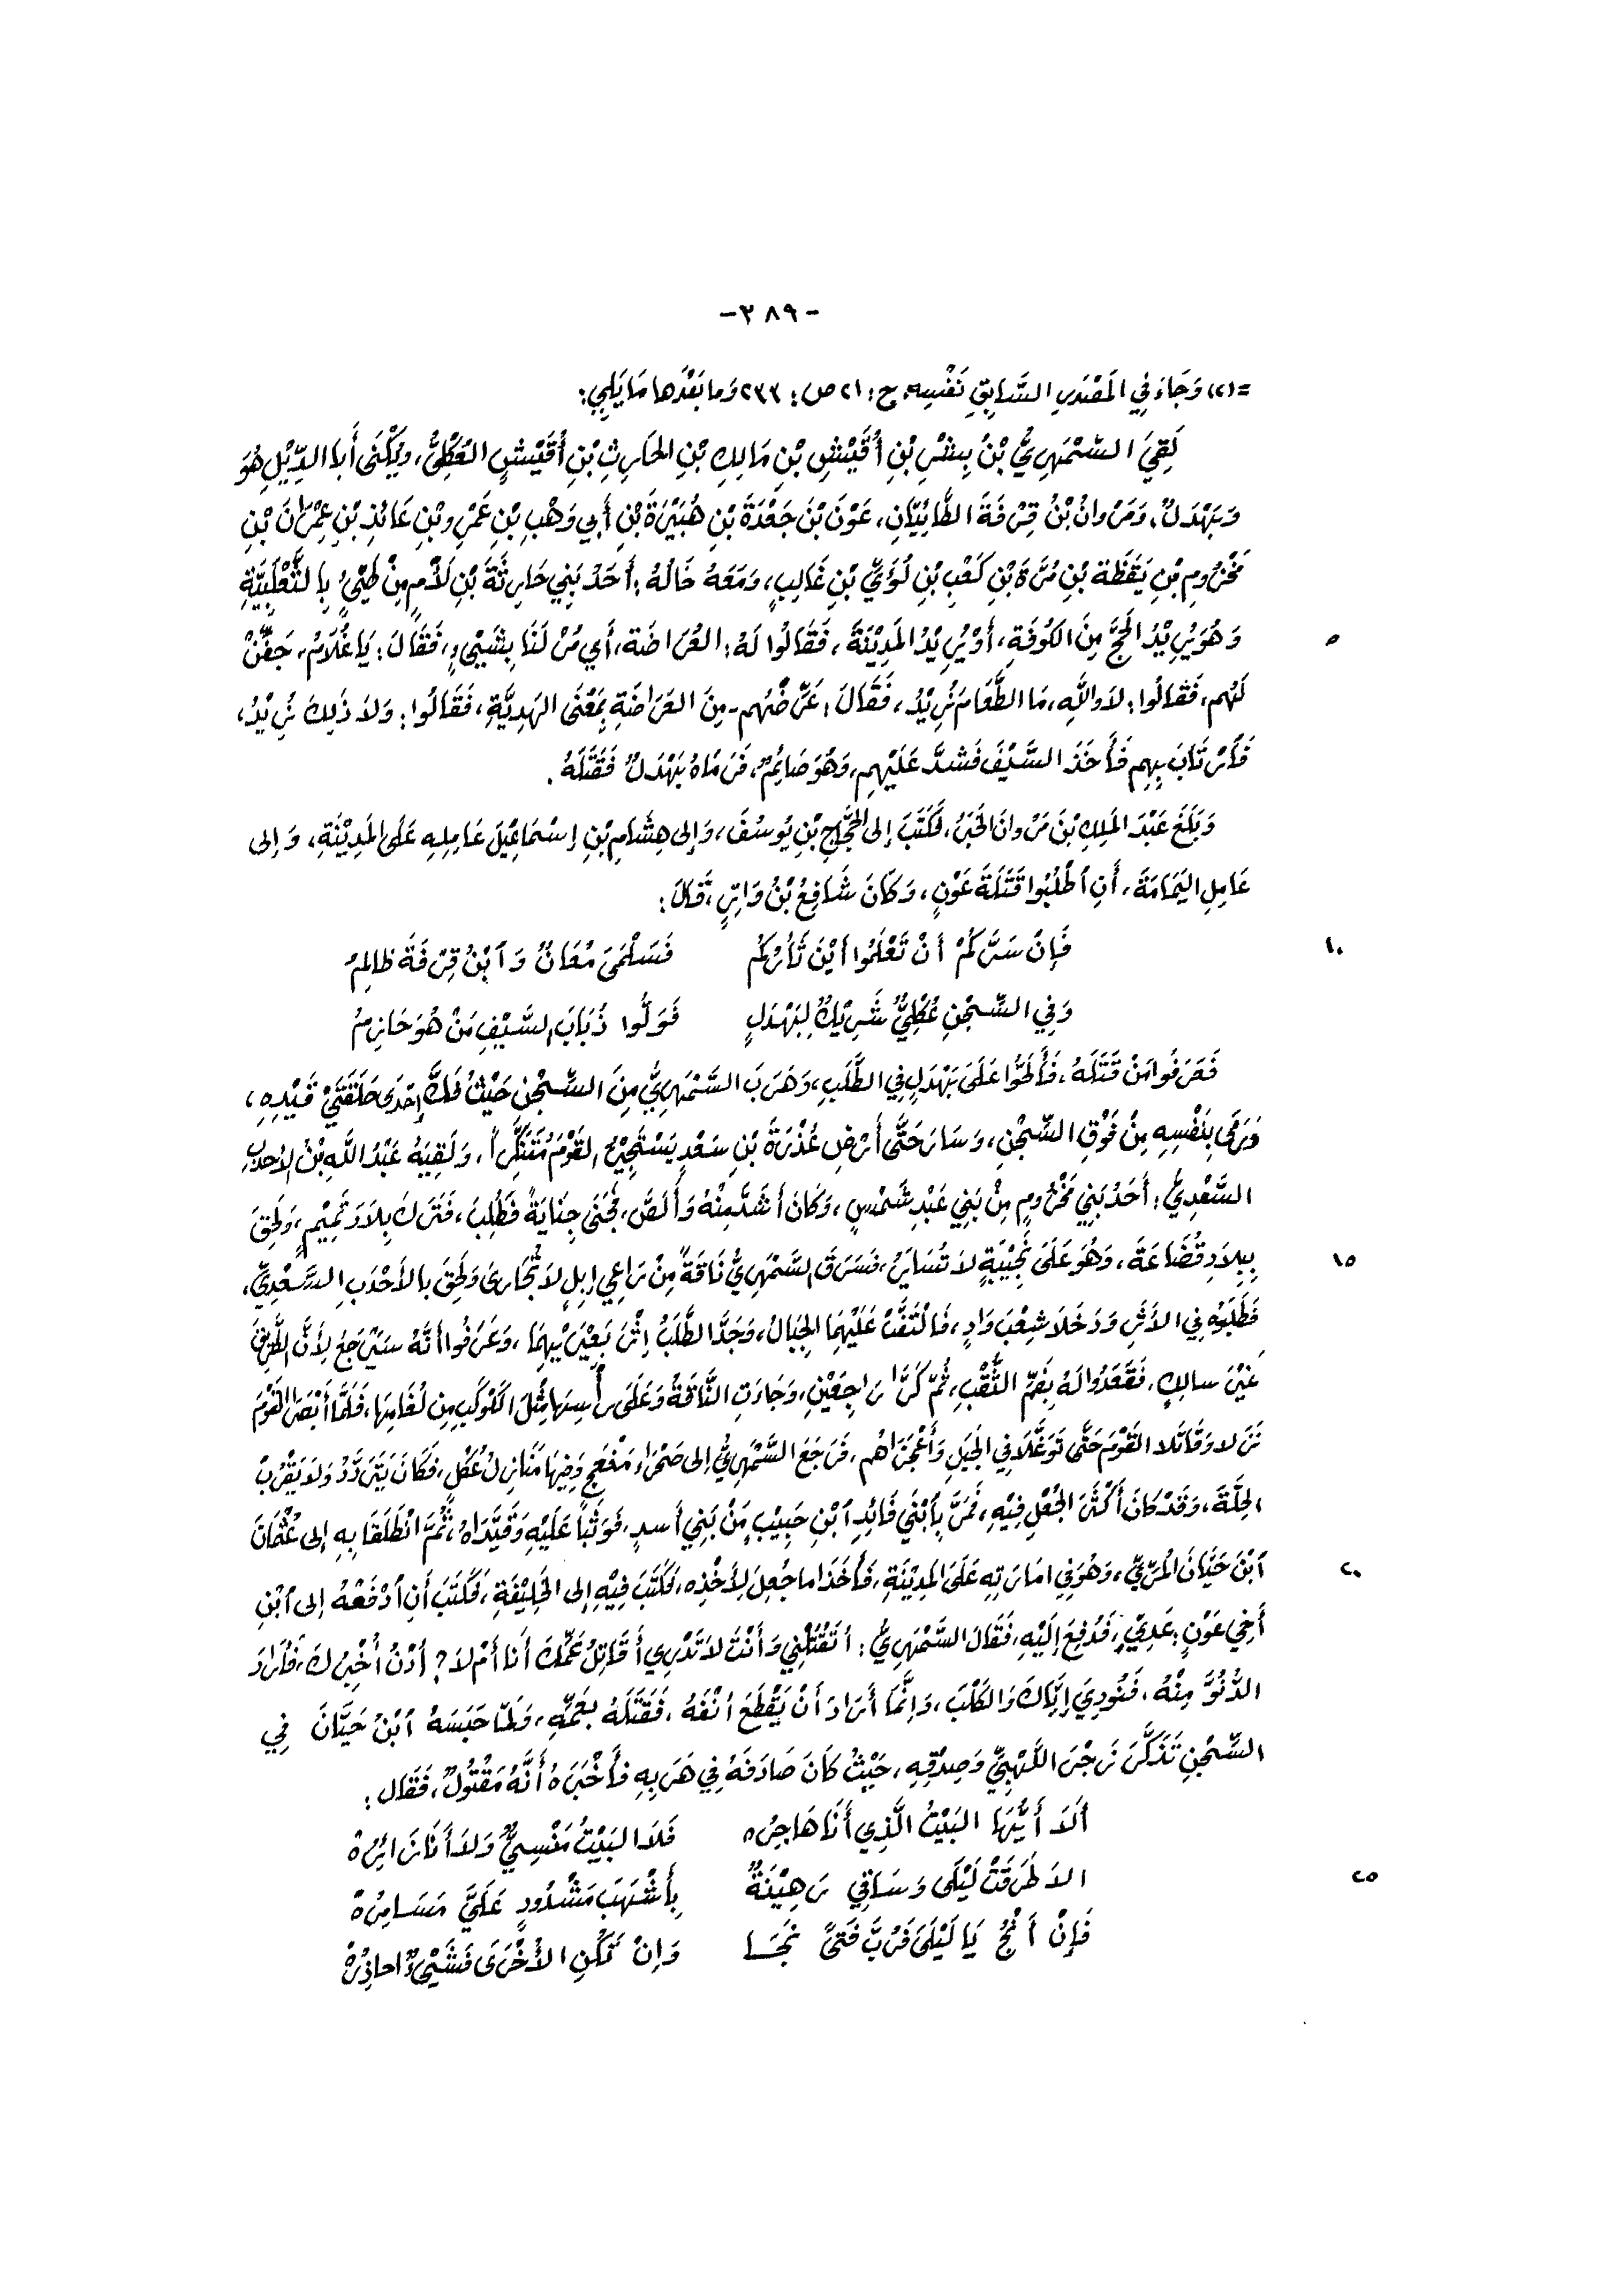 -٣٨٩-
=(٢) وَجَاءَ فِي المَصْدَرِ السَّابِقِ نَفْسِهِ ج: ٢١ ص: ٢٣٣ وَما بَعْدَها مَا يَلِي:
لَقِيَ السَّمْهَرِيُّ بْنُ بِشْرِ بْنِ أُقَيْشِ بْنِ مَالِكِ بْنِ الحَارِثِ بْنِ أُقَيْشٍ العُكْلِيُّ، وَيُكْنَى أَبا الدِّيْلِ هُوَ
وَبَهْدَلٌ، وَمَرْوانُ بْنُ قِرْفَةَ الطَّائِيَّانِ، عَوْنَ بْنَ جَعْدَةَ بْنِ هُبَيْرَةَ بْنِ أَبِي وَهْبِ بْنِ عَمْرِو بْنِ عَائِذِ بْنِ عِمْرَانَ بْنِ
مَخْزُومِ بْنِ يَقَظَةَ بْنِ مُرَّةَ بْنِ كَعْبِ بْنِ لُؤَيِّ بْنِ غَالِبٍ، وَمَعَهُ خَالُهُ: أَحَدُ بَنِي حَارِثَةَ بْنِ لَأْمٍ مِنْ طَيِّئٍ بِالثَّعْلَبِيَّةِ
٥ وَهُوَ يُرِيْدُ الحَجَّ مِنَ الكُوفَةِ، أَوْ يُرِيْدُ المَدِيْنَةَ، فَقَالُوا لَهُ: العُرَاضَةَ، أَي مُرْ لَنَا بِشَيْءٍ، فَقَالَ: يَا غُلَامُ، جَفِّنْ
لَهُم، فَقالُوا: لَا وَاللَّهِ، مَا الطَّعَامَ نُرِيْدُ، فَقَالَ: عَرِّضْهُم - مِنَ العَرَاضَةِ بِمَعْنَى الهَدِيَّةِ، فَقَالُوا: وَلَا ذَلِكَ نُرِيْدُ،
فَأَرْتَابَ بِهِم فَأَخَذَ السَّيْفَ فَشَدَّ عَلَيْهِم، وَهُوَ صَائِمٌ، فَرَمَاهُ بَهْدَلٌ فَقَتَلَهُ.
وَبَلَغَ عَبْدَ المَلِكِ بْنَ مَرْوانَ الخَبَرُ، فَكَتَبَ إِلى الحَجَّاجِ بْنِ يُوسُفَ، وَإِلى هِشَامِ بْنِ إِسْمَاعِيْلَ عَامِلِهِ عَلَى المَدِيْنَةِ، وَإِلى
عَامِلِ اليَمَامَةِ، أَنِ ٱطْلُبُوا قَتَلَةَ عَوْنٍ، وَكَانَ شَافِعُ بْنُ وَاتِرٍ، قَالَ:
١٠ فَإِنْ سَرَّكُمْ أَنْ تَعْلَمُوا أَيْنَ ثَأْرُكُم فَسَلْمَى مُعَانٌ وَٱبْنُ قِرْفَةَ ظَالِمُ
وَفِي السِّجْنِ عُكْلِيٌّ شَرِيْكٌ لِبَهْدَلٍ فَوَلُّوا ذُبَابَ السَّيْفِ مَنْ هُوَ حَازِمُ
فَعَرَفُوا مَنْ قَتَلَهُ، فَأَلَحُّوا عَلَى بَهْدَلٍ فِي الطَّلَبِ، وَهَرَبَ السَّمْهَرِيُّ مِنَ السِّجْنِ حَيْثُ فَكَّ إِحْدَى حَلَقَتَيْ قَيْدِهِ،
وَرَمَى بِنَفْسِهِ مِنْ فَوْقِ السِّجْنِ، وَسَارَ حَتَّى أَرْضِ عُذْرَةَ بْنِ سَعْدٍ يَسْتَجِيْرُ القَوْمَ مُتَنَكِّراً، وَلَقِيَهُ عَبْدُ اللَّهِ بْنُ الأَحْدَبِ
السَّعْدِيُّ: أَحَدُ بَنِي مَخْزُومٍ مِنْ بَنِي عَبْدِ شَمْسٍ، وَكَانَ أَشَدَّ مِنْهُ وَأَلَصَّ، فَجَنَى جِنَايَةً فَطُلِبَ، فَتَرَكَ بِلَادَ تَمِيْمٍ، وَلَحِقَ
١٥ بِبِلَادِ قُضَاعَةَ، وَهُوَ عَلَى نَجِيْبَةٍ لَا تُسَايَرُ، فَسَرَقَ السَّمْهَرِيُّ نَاقَةً مِنْ رَاعِي إِبِلٍ لَا تُجَارَى وَلَحِقَ بالأَحْدَبِ السَّعْدِيِّ،
فَطَلَبُوهُ فِي الأَثَرِ وَدَخَلَا شِعْبَ وَادٍ، فَالْتَفَّتْ عَلَيْهِمَا الجِبَالُ، وَجَدَّ الطَّلَبُ إِثْرَ بَعِيْرَيْهِمَا، وَعَرَفُوا أَنَّهُ سَيَرْجِعُ لِأَنَّ الطَّرِيْقَ
غَيْرُ سالِكٍ، فَقَعَدُوا لَهُ بِفَمِ الثَّقْبِ، ثُمَّ كَرَّا رَاجِعَيْنِ، وَجَاءَتِ النَّاقَةُ وَعَلَى رَأْسِهَا مِثْلُ الكَوْكَبِ مِن لُغَامِهَا، فَلَمَّا أَبْصَرَا القَوْمَ
نَزَلا وَقَاتَلا القَوْمَ حَتَّى تَوَغَّلَا فِي الجَبَلِ وَأَعْجَزَاهُم، فَرَجَعَ السَّمْهَرِيُّ إِلى صَحْرَاءِ مَنْعَجٍ وَفِيهَا مَنَازِلُ عُكْلٍ، فَكَانَ يَتَرَدَّدُ وَلَا يَقْرَبُ
الحِلَّةَ، وَقَدْ كَانَ أَكْثَرَ الجُعْلِ فِيْهِ، فَمَرَّ بِٱبْنَي فَائِدِ ٱبْنِ حَبِيْبٍ مِنْ بَنِي أَسدٍ، فَوَثَبا عَلَيْهِ وَقَيَّدَاهُ، ثُمَّ انْطَلَقَا بِهِ إِلى عُثْمَانَ
٢٠ ٱبْنِ حَيَّانَ المُرِّيِّ، وَهُوَ فِي امَارَتِهِ عَلَى المَدِيْنَةِ، فَأَخَذَا ما جُعِلَ لِأَخْذِهِ، فَكَتَبَ فِيْهِ إِلى الخَلِيْفَةِ، فَكَتَبَ أَنِ ٱدْفَعْهُ إِلى ٱبْنِ
أَخِي عَوْنٍ: عَدِيٍّ، فَدُفِعَ إِلَيْهِ، فَقَالَ السَّمْهَرِيُّ: أَتَقْتُلُنِي وَأَنْتَ لَا تَدْرِي أَقَاتِلُ عَمِّكَ أَنا أَمْ لَا؟ أُدْنُ أُخْبِرْكَ، فَأَرَادَ
الدُّنُوَّ مِنْهُ، فَنُودِيَ إِيَّاكَ وَالكَلْبَ، وَإِنَّمَا أَرَادَ أَنْ يَقْطَعَ أَنْفَهُ، فَقَتَلَهُ بِعَمِّهِ، وَلَمَّا حَبَسَهُ ٱبْنُ حَيَّانَ فِي
السِّجْنِ تَذَكَّرَ زَجْرَ اللَّهْبِيِّ وَصِدْقِهِ، حَيْثُ كَانَ صَادَفَهُ فِي هَرَبِهِ فَأَخْبَرَهُ أَنَّهُ مَقْتُولٌ، فَقَال:
أَلَا أَيُّهَا البَيْتُ الَّذِي أَنَا هَاجِرُه فَلَا البَيْتُ مَنْسِيٌّ وَلَا أَنَا زَائِرُهْ
٢٥ الَا طَرَقَتْ لَيْلَى وَسَاقِي رَهِيْنَةٌ بِأَشْهَبَ مَشْدُودٍ عَلَيَّ مَسَامِرُهْ
فَإِنْ أَنْجُ يَا لَيْلَى فَرُبَّ فَتىً نَجَا وَإِنْ تَكُنِ الأُخْرَى فَشَيْءٌ احاذِرُهْ